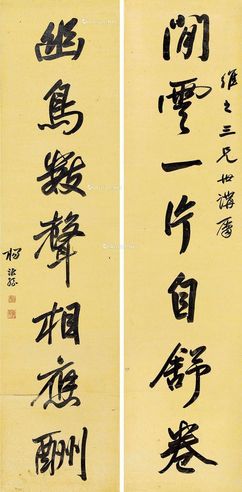 維之三兄世講屬
閒雲一片自舒卷
幽鳥數聲相應酬
楊